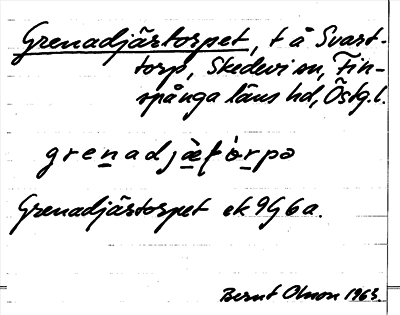 Grenadjärstorpet, t å Svart-
torp, Skedevi sn, Fin-
spånga läns hd, Östg. l.
grenadjä̀ʈórpə
Grenadjärstorpet ek 9G 6a.
Bernt Olsson 1963.